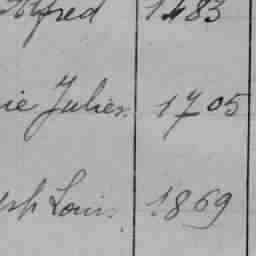 Alfred 1483
ie Julien 1705
ph Louis 1869